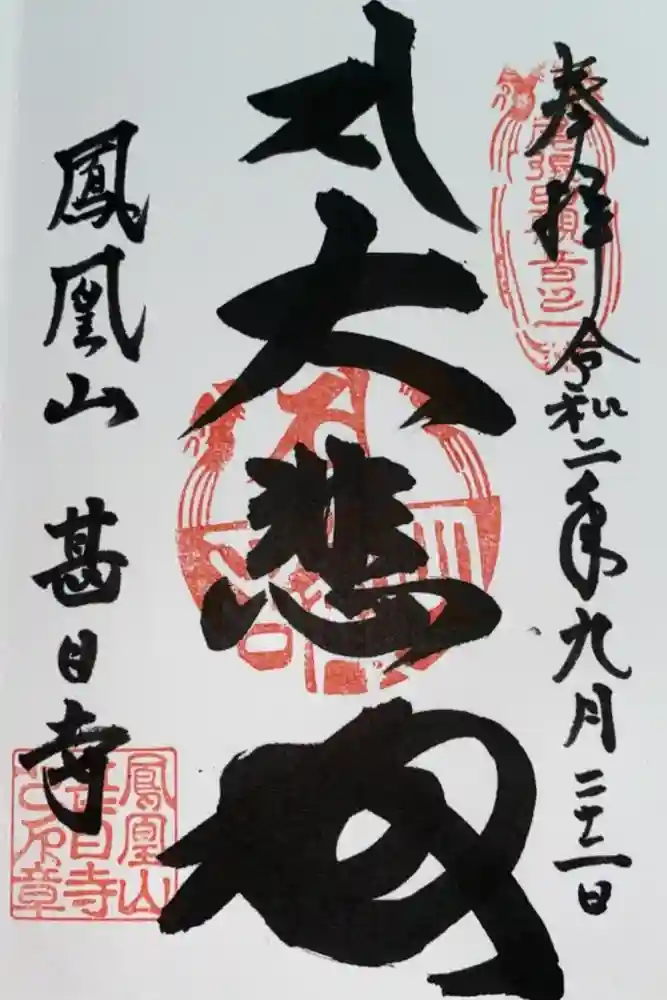 奉拝 令和二年九月二十二日
尾張四観音之一
大悲殿
鳳凰山 甚目寺
鳳凰山
甚目寺